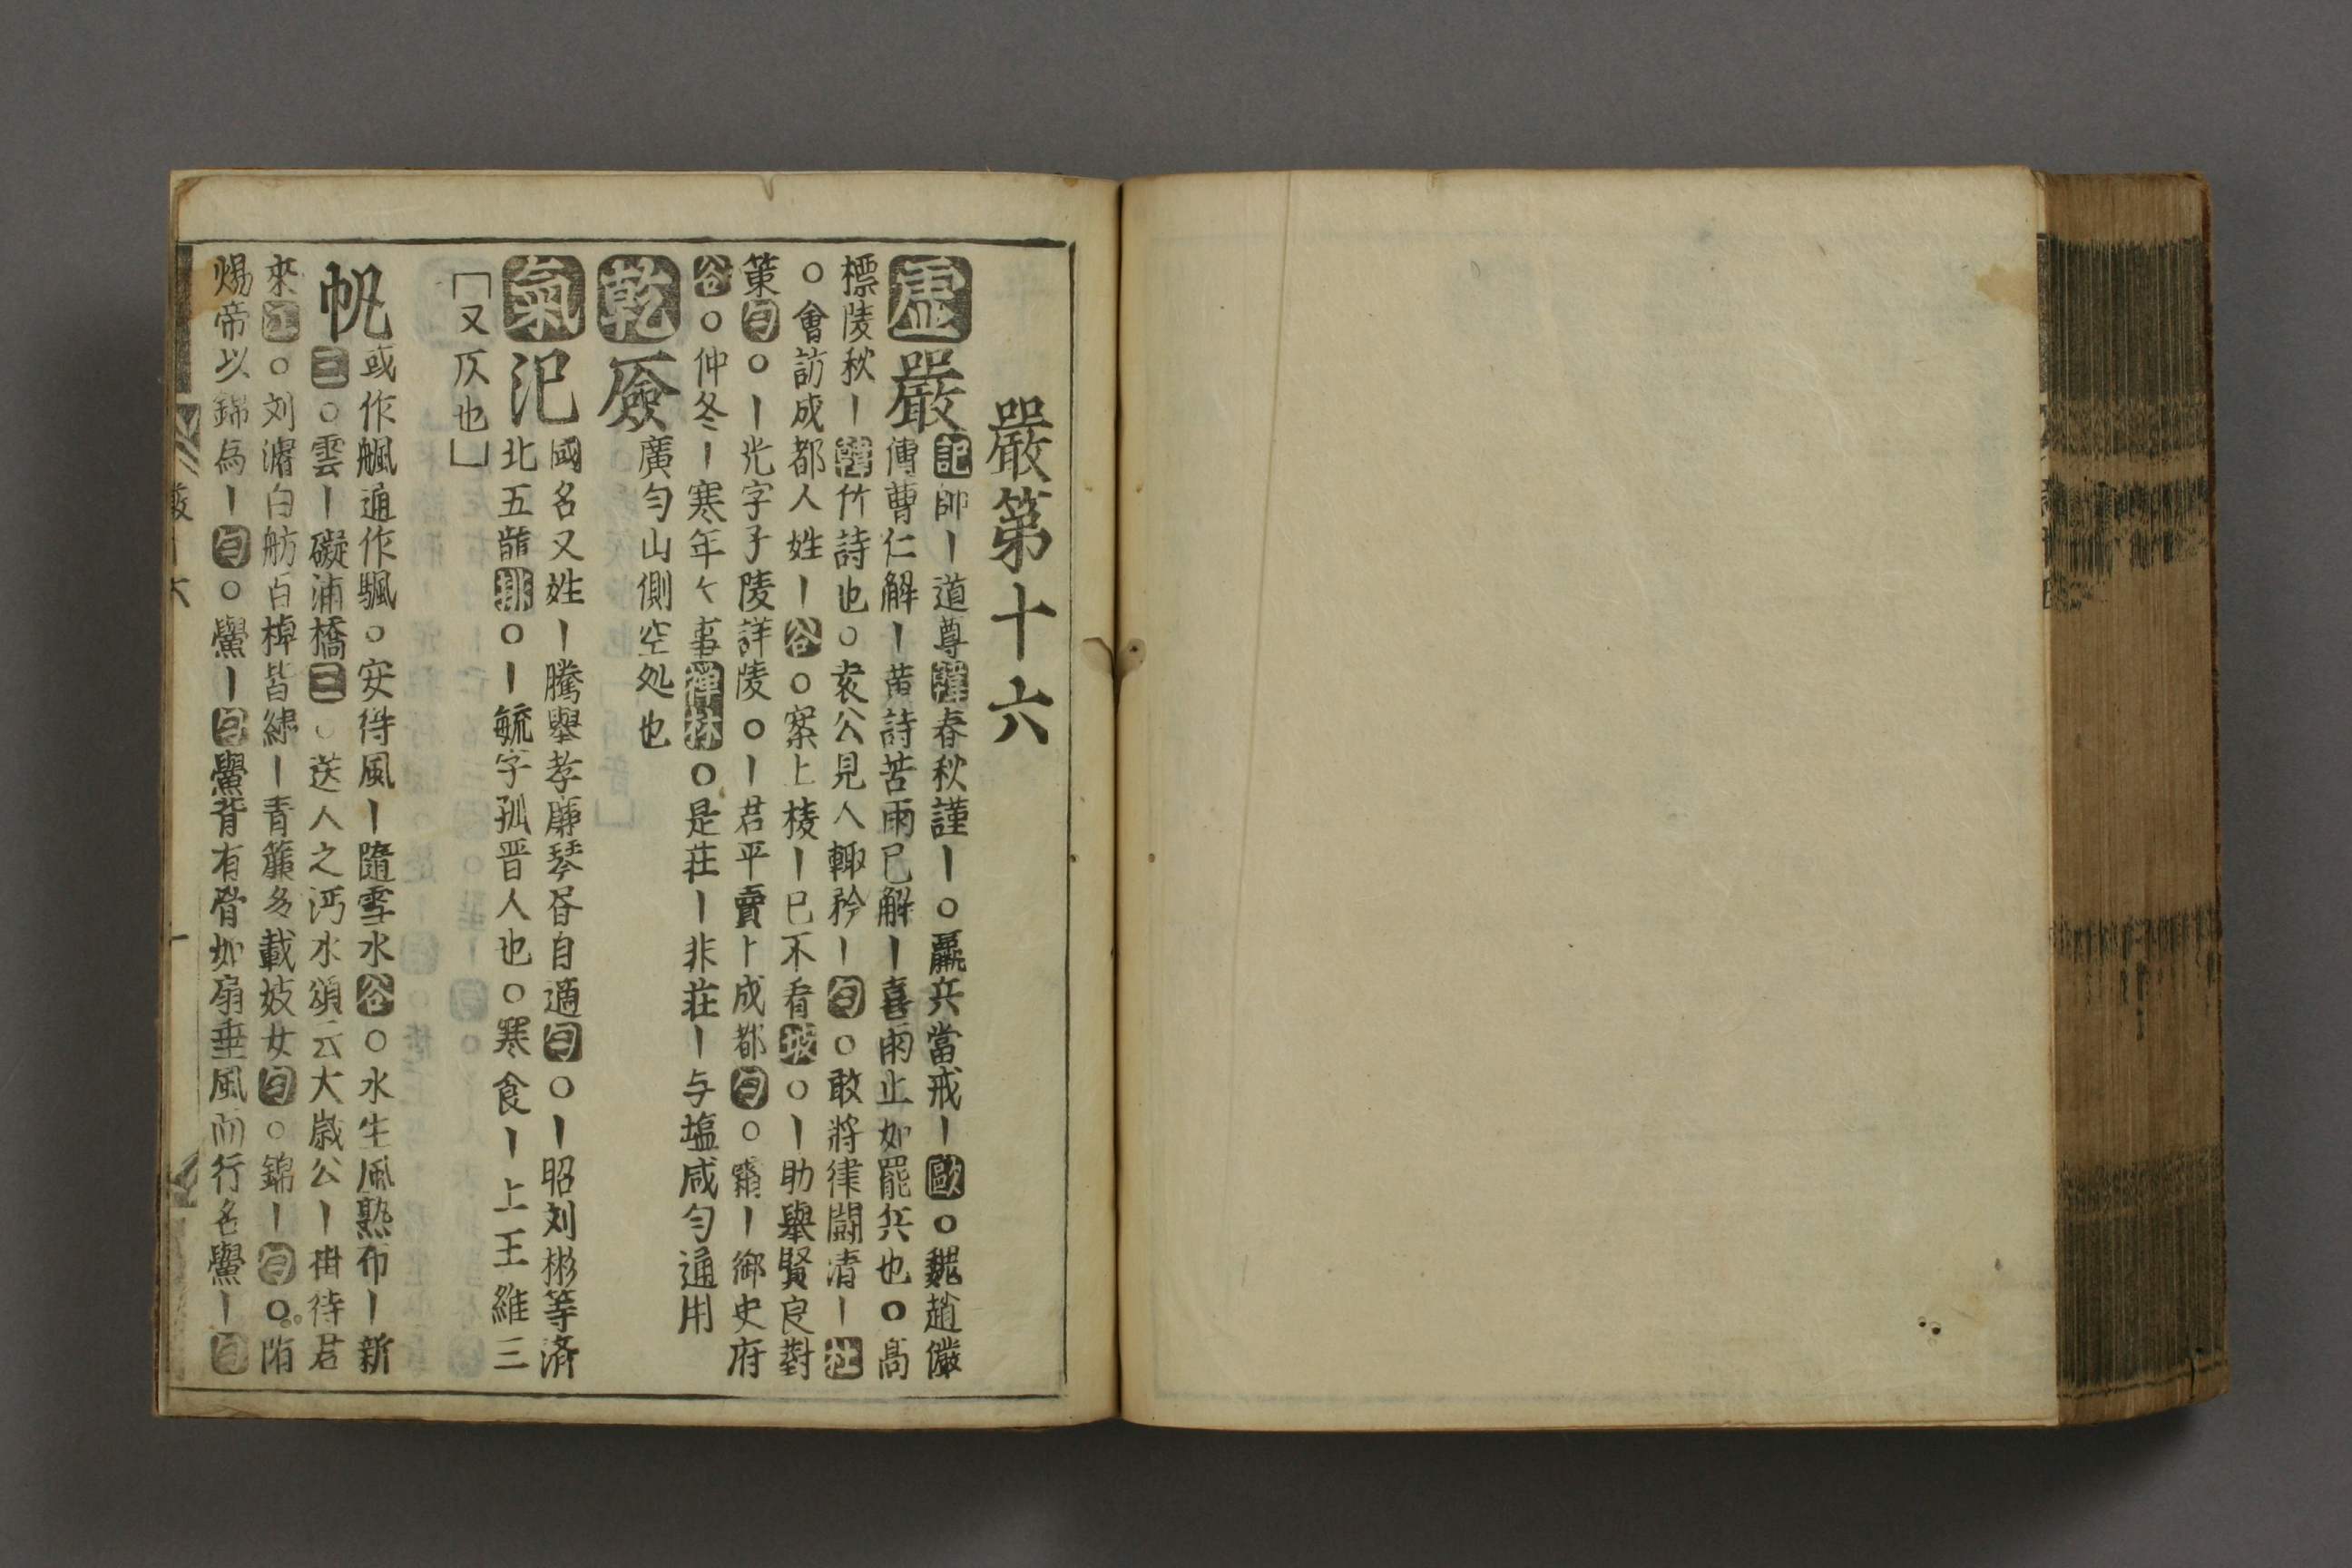 嚴第十六
虛嚴記師丨道尊韓春秋謹丨○羸兵當戒丨歐○魏趙儼
傳曹仁解丨黄詩苦雨已解丨喜雨止如罷兵也○高
標陵秋丨韓竹詩也○衮公見人輙矜丨句○敢將律闘清丨社
○會訪成都人姓丨谷○案上棱丨已不看坡○丨助舉賢良對
策句○丨光字子陵詳陵○丨君平賣卜成都句○霜丨御史府
谷○仲冬丨寒年々事禪林○是荘丨非荘丨与塩咸匀通用
乾䉷廣匀山側空处也
氣汜國名又姓丨騰舉孝廉琴昏自適句○丨昭刘彬等済
北五龍排○丨毓字孤晋人也○寒食丨上王維三
「又仄也」
帆或作颿通作䑺○安得風丨隨雪水谷○水生風熟布丨新
三○雲丨礙浦橋三○送人之沔水頌云大嵗公丨掛待君
來江○刘濬白舫百棹皆繍丨青簾多載妓女句○錦丨句○隋
煬帝以錦為丨句○鱟丨句鱟背有骨如扇垂風而行名鱟丨句